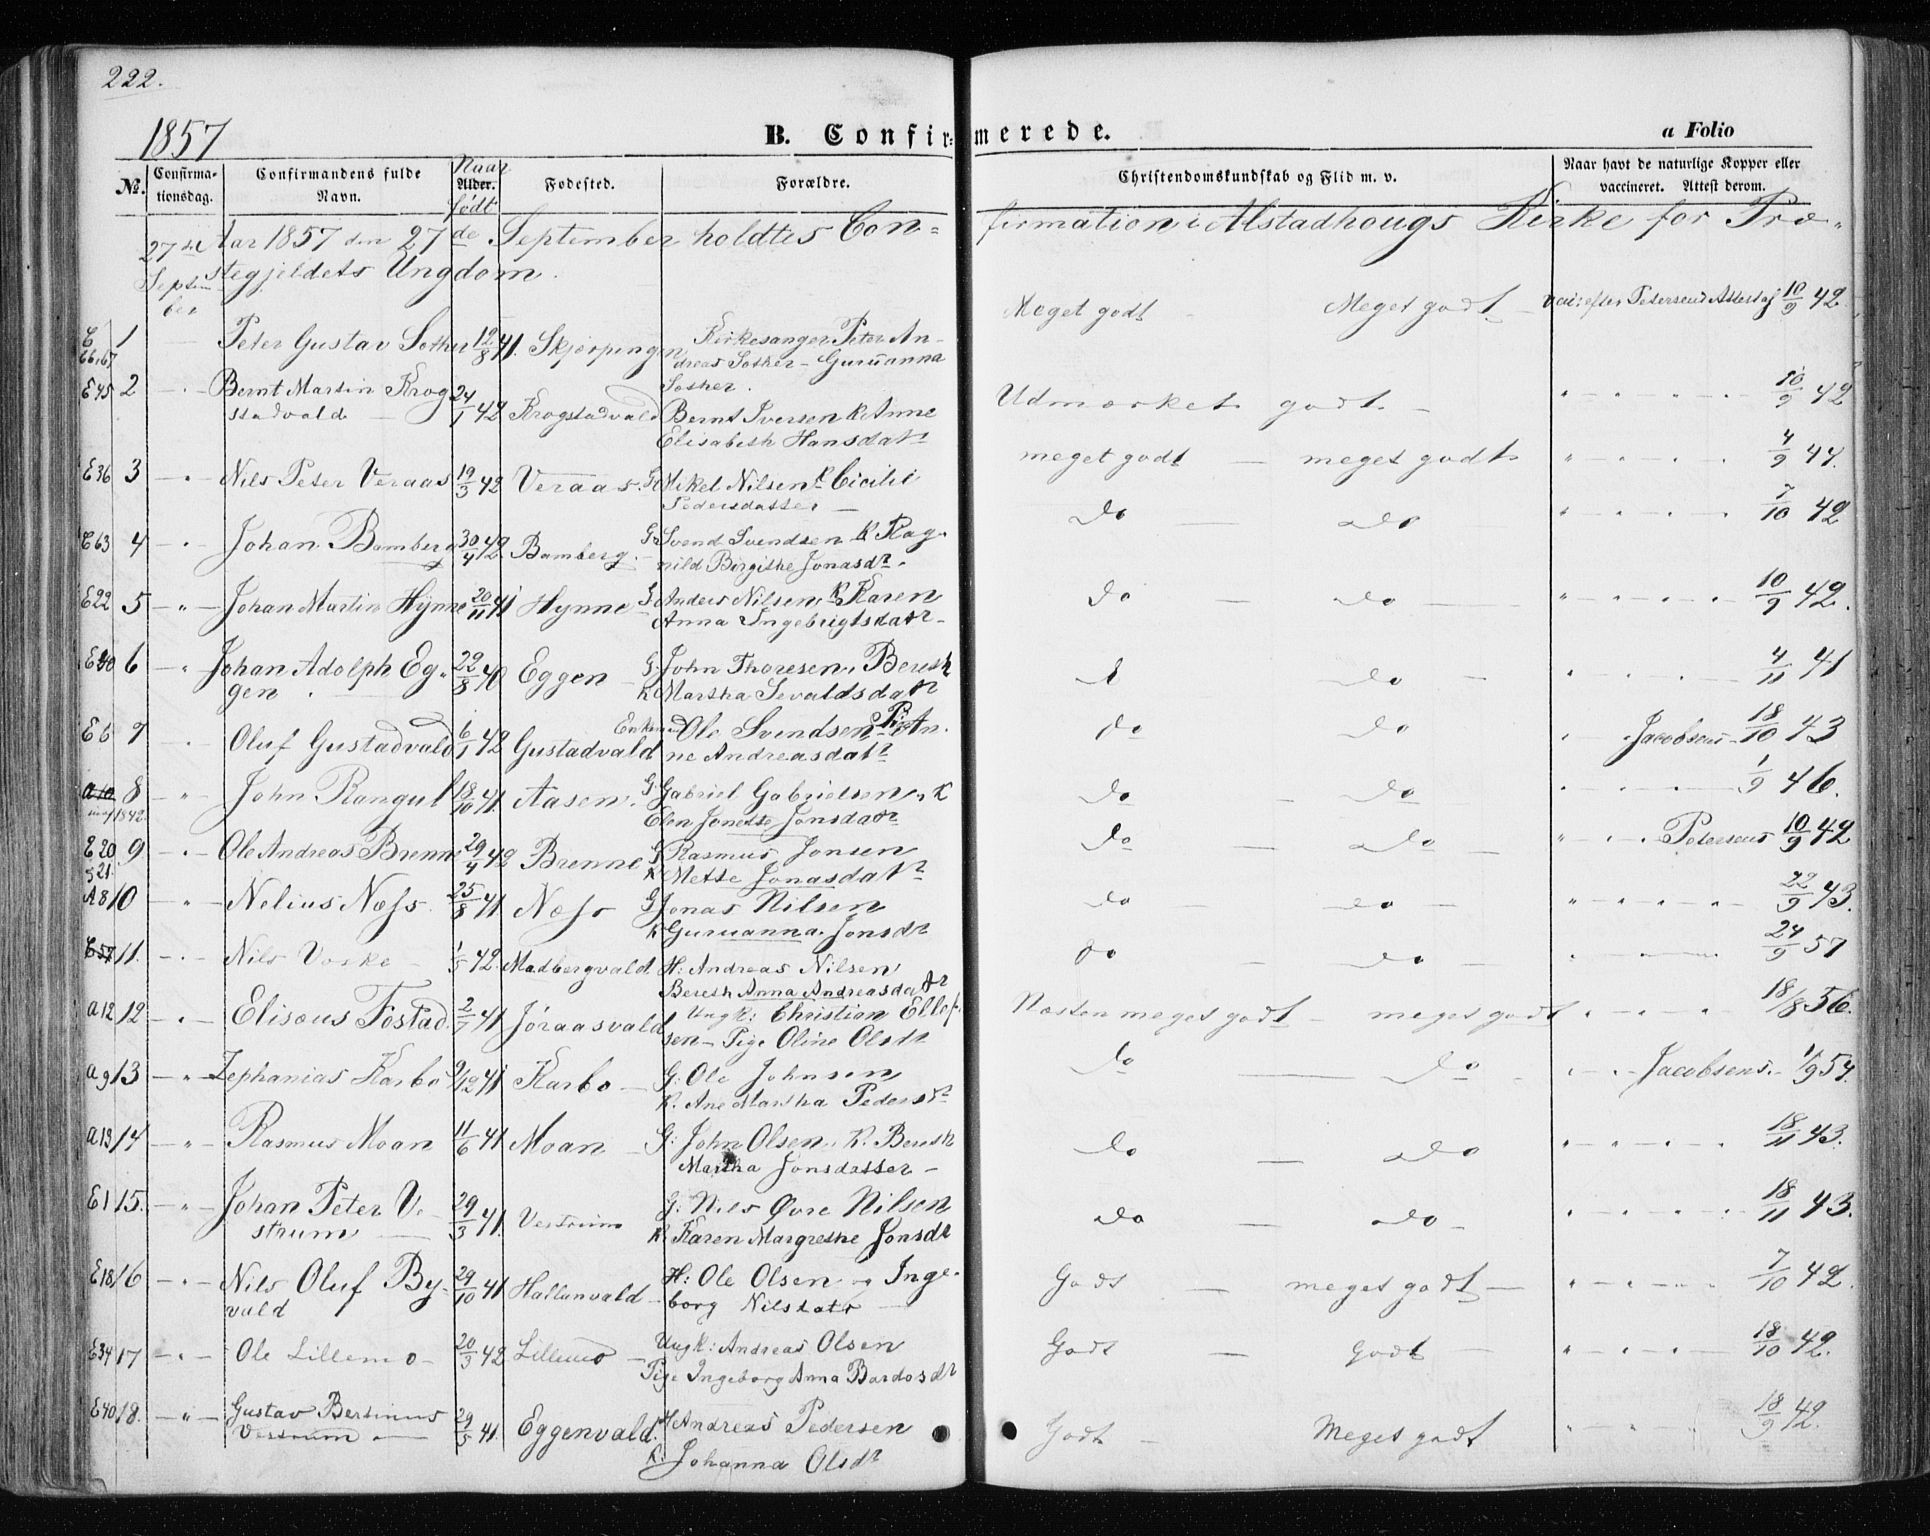 222.
1857
B. Confirmerede.
a Folio
No. Confirmationsdag. Confirmandens fulde Navn. Naar Alder. født Fødested. Forældre. Christendomskundskab og Flid m. v. Naar havt de naturlige Kopper eller vaccineret. Attest derom.
27de September
Aar 1857 den 27de September holdtes Con= firmation i Alstadhougs Kirke for Præ-
stegjeldets Ungdom.
E 66,67 1 Peter Gustav Sother 12/8 41. Skjerpingen Kirkesanger Peter An- Meget godt Meget godt vac: efter Petersens Attest af 10/9 42
dreas Sother - Guruanna
Sother.
E45 2 Bernt Martin Krog 24/1 42 Krogstadvald Bernt Iversen K Anne Udmærket godt 10/9 42
stadvald Elisabeth Hansdatr
E36 3 Nils Peter Veraas 19/3 42 Veraas. G Mikel Nilsen K Cicilie meget godt meget godt 4/9 44.
Pedersdatter
E63 4 Johan Bamberg 30/4 42 Bamberg G Svend Svendsen K Rag- do do 7/10 42
nild Birgithe Jonasdr.
E22 5 Johan Martin Hynne 20/11 41 Hynne G Anders Nilsen, K Karen do do 10/9 42.
Anna Ingebrigtsdatr
6 Johan Adolph Eg- 22/8 40 Eggen G. John Thoresen, Bereth do 4/11 41
gen K Martha Sevaldsdatr
E6 7 Oluf Gustadvald 6/1 42 Gustadvald Enkem Ole Svendsen Pi An- do do Jacobsens 18/10 43
ne Andreasdatr
8 John Rangul 18/10 41. Aasen. G. Gabriel Gabrielsen, K do do 1/9 46.
1842 Elen Jonette Jonsdatr
E20 9 Ole Andreas Brenne 29/4 42 Brenne G Rasmus Jonsen do do Petersens 10/9 42
K Mette Jonasdatr
A8 10 Nelius Næss 25/8 41 Næss G Jonas Nilsen do do 22/9 43.
K Guruanna Jonsdr
11. Nils Voske 1/5 42. Madbergvald. H: Andreas Nilsen do do 24/9 57
Bereth Anna Andreasdatr
a12 12 Elisæus Fostad 2/7 41 Joraasvald Ungk: Christian Ellef- Næsten meget godt meget godt 18/8 56.
sen - Pige Oline Olsdr
a9 13 Zephanias Karbo 9/12 41 Karbo G: Ole Johnsen do do Jacobsens. 1/9 54.
K. Ane Martha Pedersdr
a13 14 Rasmus Moan 11/6 41 Moan G: John Olsen, K. Bereth do do 18/11 43.
Martha Jonsdatter
E1 15. Johan Peter Ve- 29/3 41. Vestrum G: Nils Øvre Nilsen do do 18/11 43.
strum K Karen Margrethe Jonsdr
E18 16 Nils Oluf By- 29/10 41 Hallanvald H: Ole Olsen og Inge- Godt meget godt 7/10 42.
vald borg Nilsdatr
E34 17 Ole Lillemo 20/3 42 Lillemo Ungk: Andreas Olsen Godt Godt 18/10 42.
Pige Ingeborg Anna Bardosdr
E40 18. Gustav Bersinus 29/5 41. Eggenvald. H Andreas Pedersen Godt Meget godt 18/9 42.
Vestrum K. Johanna Olsdr